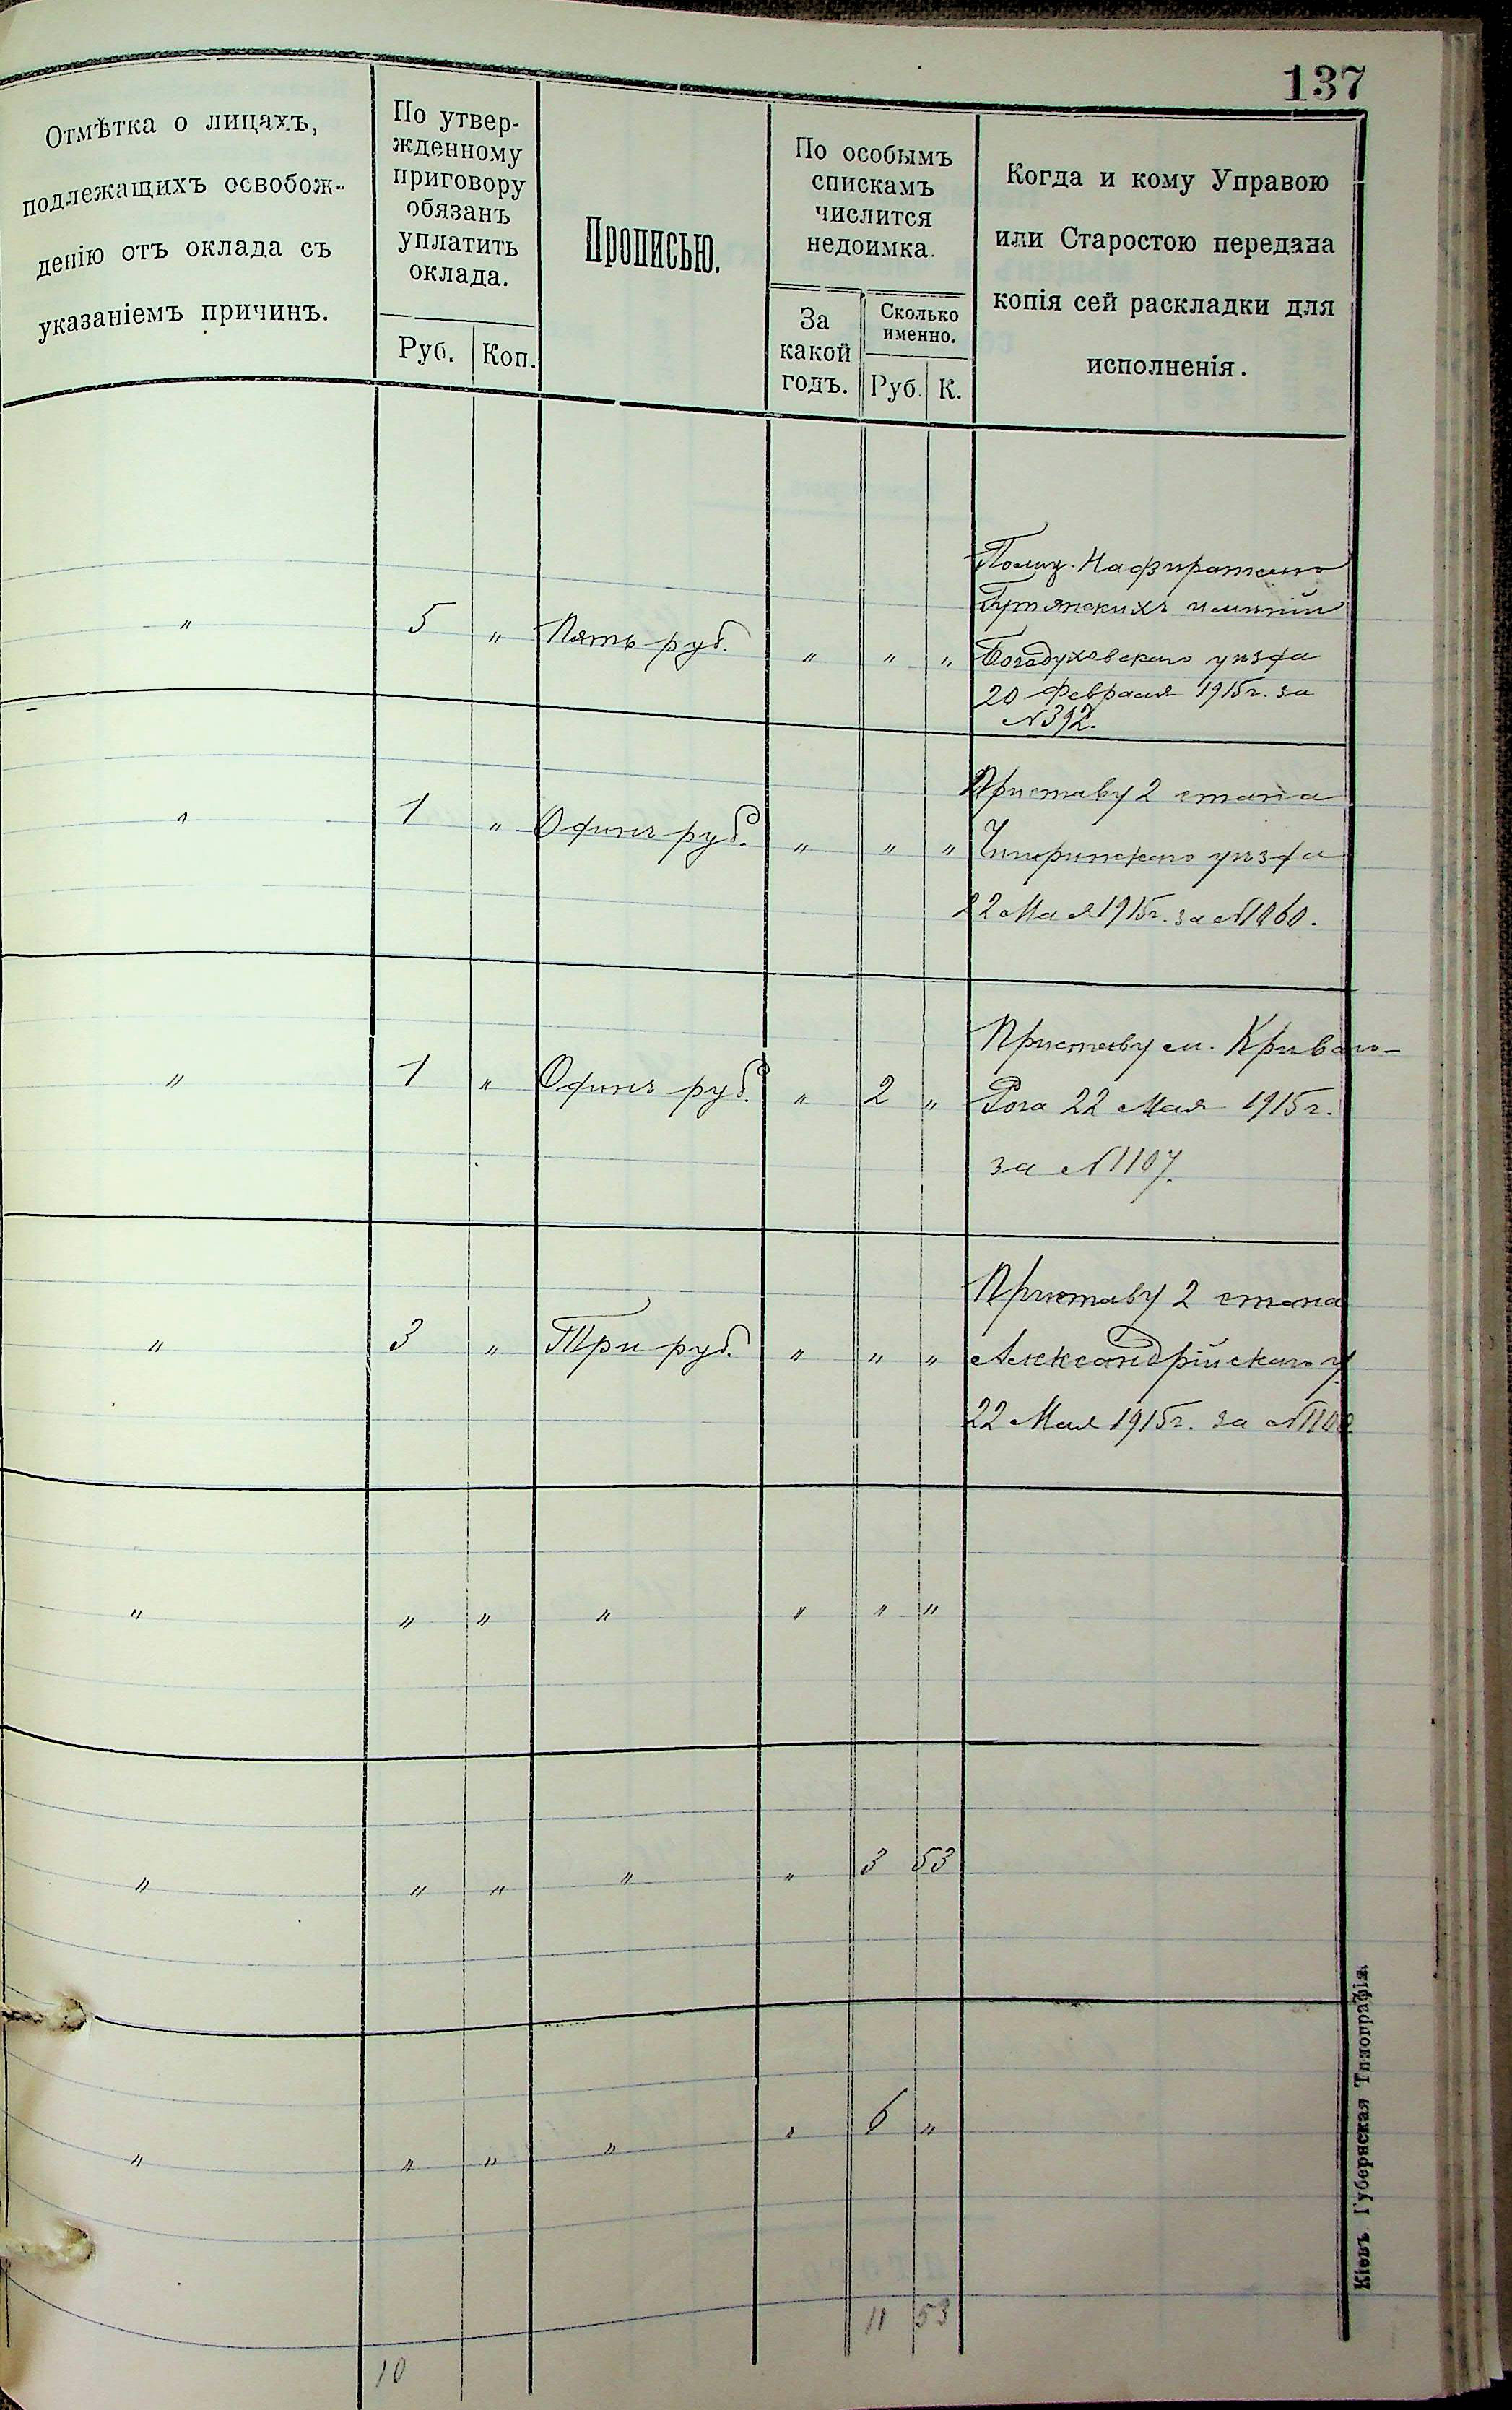 137
Отмѣтка о лицахъ,
подлежащихъ освобож-
денію отъ оклада съ
указаніемъ причинъ.
По утвер-
жденному
приговору
обязанъ
уплатить
оклада.
Руб. Коп.
Прописью.
По особымъ
спискамъ
числится
недоимка.
За
какой
годъ.
Сколько
именно.
Руб. К.
Когда и кому Управою
или Старостою передана
копія сей раскладки для
исполненія.
" 5 " Пять руб. " " "
имѣній
Богодуховскаго уѣзда
20 Февраля 1915г. за
№392.
" 1 " Одинъ руб. " " "
Приставу 2 стана
Чигиринскаго уѣзда
22 Мая 1915г. за №1060.
" 1 " Одинъ руб. " 2 "
Приставу м. Кривого-
Рога 22 Мая 1915г.
за №1107.
" 3 " Три руб. " " "
Приставу 2 стана
Александрійскаго у.
22 Мая 1915г. за
" " " " " " "
" " " " " 3 53
" " " " " 6 "
10 11 53
Кіевъ. Губернская Типографія.